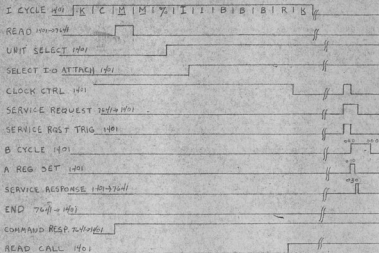 I CYCLE 1401 K C M M % I 1 B B B R K
READ 1401→7641
UNIT SELECT 1401
SELECT I-O ATTACH 1401
CLOCK CTRL 1401
SERVICE REQUEST 7641→1401
SERVICE RQST TRIG 1401
B CYCLE 1401
A REG SET 1401
SERVICE RESPONSE 1401→7641
END 7641→1401
COMMAND RESP. 7641→1401
READ CALL 1401